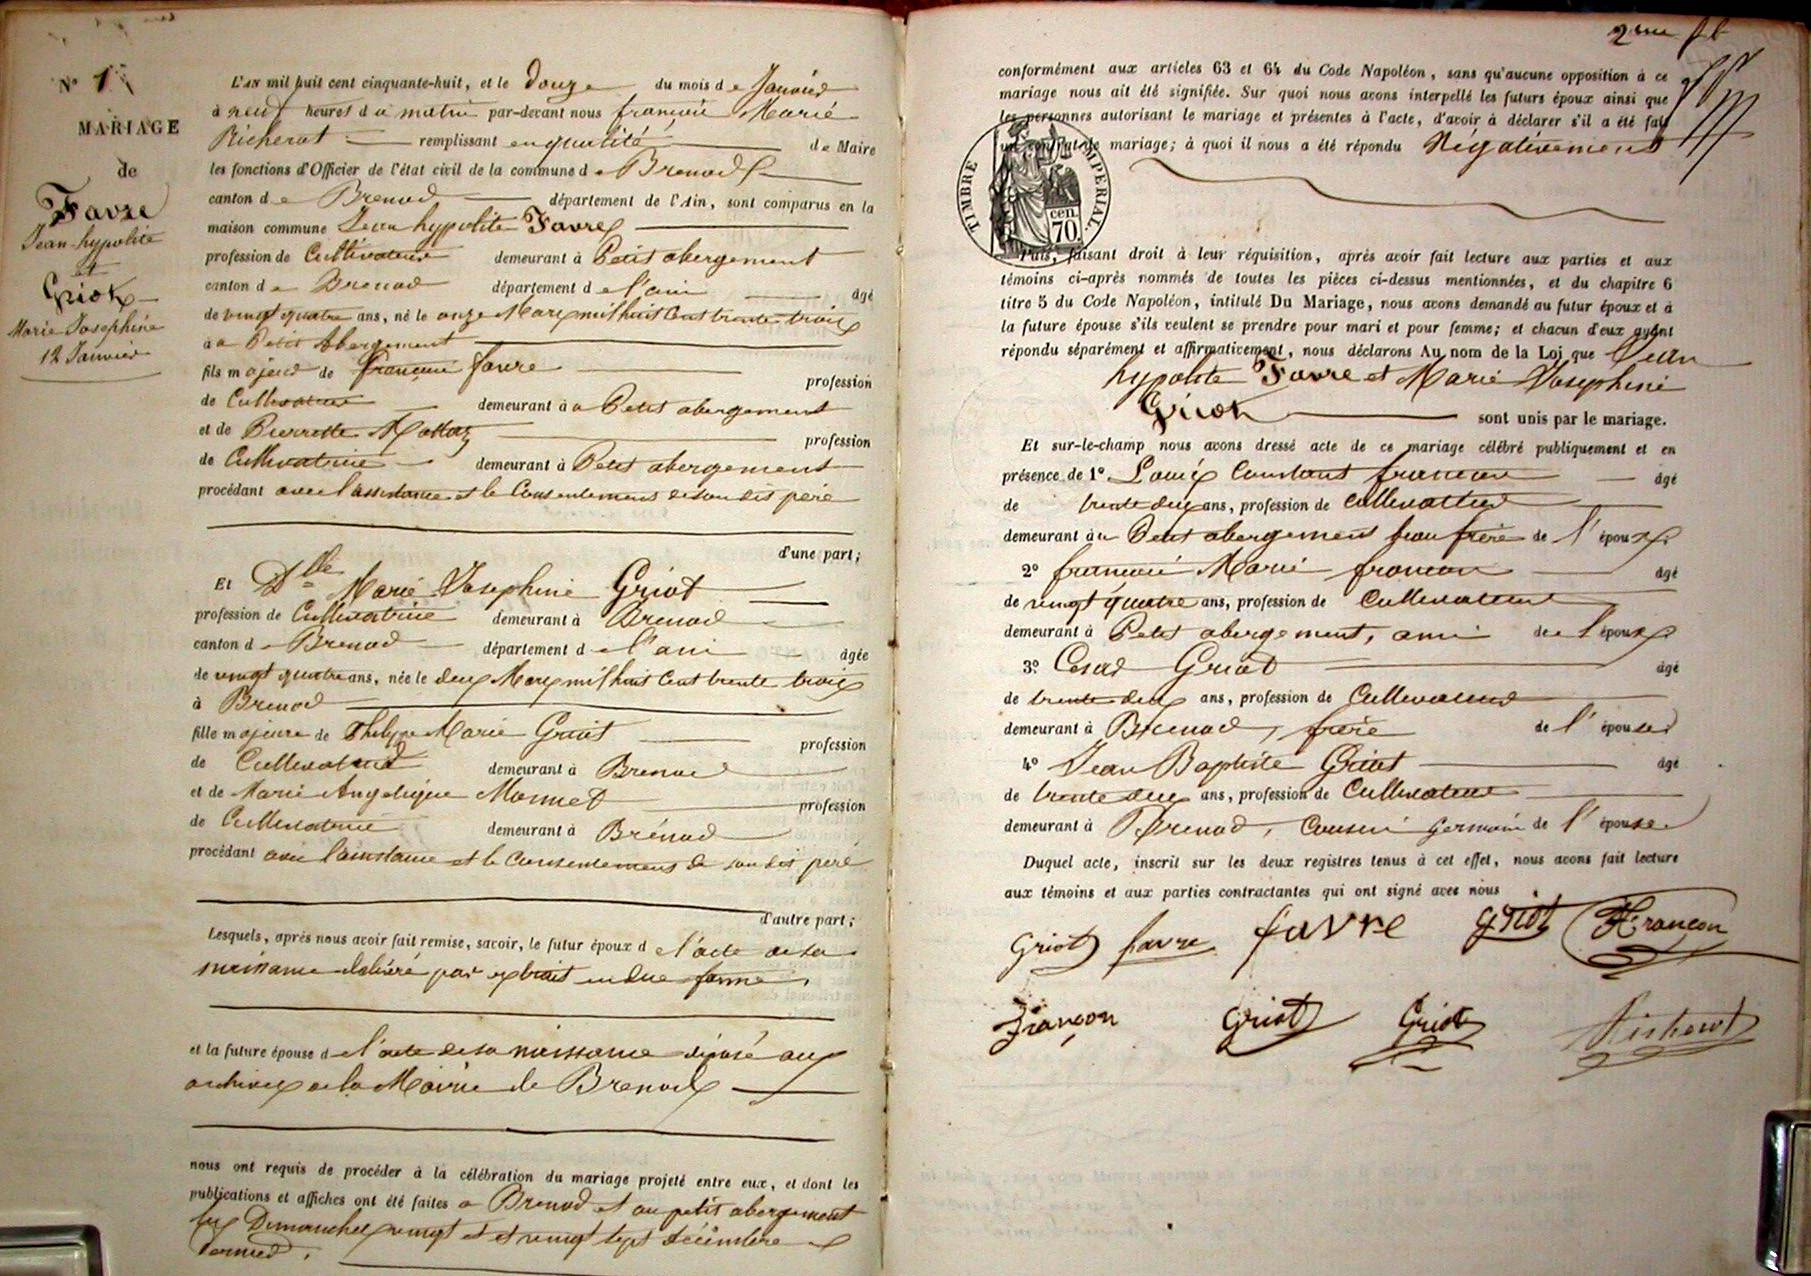 N° 1
MARIAGE
de
Favre
Jean-hypolite
et
Griot
Marie Josephine
12 Janvier
L'AN mil huit cent cinquante-huit, et le douze du mois de Janvier
à neuf heures du matin par-devant nous françois Marie
Richerot remplissant en qualité de Maire
les fonctions d'Officier de l'état civil de la commune de Brenod
canton de Brenod département de l'Ain, sont comparus en la
maison commune Jean hypolite Favre
profession de Cultivateur demeurant à Petit abergement
canton de Brenod département de l'ain âgé
de vingt quatre ans, né le onze Mars mil huit Cent trente trois
à Petit Abergement
fils majeur de françois favre profession
de Cultivateur demeurant à Petit abergement
et de Pierrette Mottaz profession
de Cultivatrice demeurant à Petit abergement
procédant avec l'assistance et le Consentement de son dit père
d'une part;
Et Dlle Marie Josephine Griot
profession de Cultivatrice demeurant à Brenod
canton de Brenod département de l'ain âgée
de vingt quatre ans, née le deux Mars mil huit Cent trente trois
à Brenod
fille majeure de Philippe Marie Griot profession
de Cultivateur demeurant à Brenod
et de Marie Angelique Monnet profession
de Cultivatrice demeurant à Brénod
procédant avec l'assistance et le Consentement de son dit père
d'autre part;
Lesquels, après nous avoir fait remise, savoir, le futur époux de l'acte de sa
naissance délivré par extrait en due forme.
et la future épouse de l'acte de sa naissance déposé aux
archives de la Mairie de Brenod
nous ont requis de procéder à la célébration du mariage projeté entre eux, et dont les
publications et affiches ont été faites à Brenod et au petit abergement
les Dimanches vingt et vingt sept décembre
dernier.
2me
conformément aux articles 63 et 64 du Code Napoléon, sans qu'aucune opposition à ce
mariage nous ait été signifiée. Sur quoi nous avons interpellé les futurs époux ainsi que
les personnes autorisant le mariage et présentes à l'acte, d'avoir à déclarer s'il a été fait
un contrat de mariage; à quoi il nous a été répondu Négativement
TIMBRE IMPERIAL.
70 cen.
Puis, faisant droit à leur réquisition, après avoir fait lecture aux parties et aux
témoins ci-après nommés de toutes les pièces ci-dessus mentionnées, et du chapitre 6
titre 5 du Code Napoléon, intitulé Du Mariage, nous avons demandé au futur époux et à
la future épouse s'ils veulent se prendre pour mari et pour femme; et chacun d'eux ayant
répondu séparément et affirmativement, nous déclarons Au nom de la Loi que Jean
hypolite Favre et Marie Josephine
Griot sont unis par le mariage.
Et sur-le-champ nous avons dressé acte de ce mariage célébré publiquement et en
présence de 1° Louis Constant françon âgé
de trente deux ans, profession de cultivateur
demeurant à Petit abergement beau frère de l'époux
2° françois Marie françon âgé
de vingt quatre ans, profession de Cultivateur
demeurant à Petit abergement, ami de l'époux
3° Cesar Griot âgé
de trente deux ans, profession de Cultivateur
demeurant à Brenod, frère de l'épouse
4° Jean Baptiste Griot âgé
de trente deux ans, profession de Cultivateur
demeurant à Brenod, Cousin germain de l'épouse
Duquel acte, inscrit sur les deux registres tenus à cet effet, nous avons fait lecture
aux témoins et aux parties contractantes qui ont signé avec nous
Griot favre favre griot Françon
Françon Griot Griot Richerot